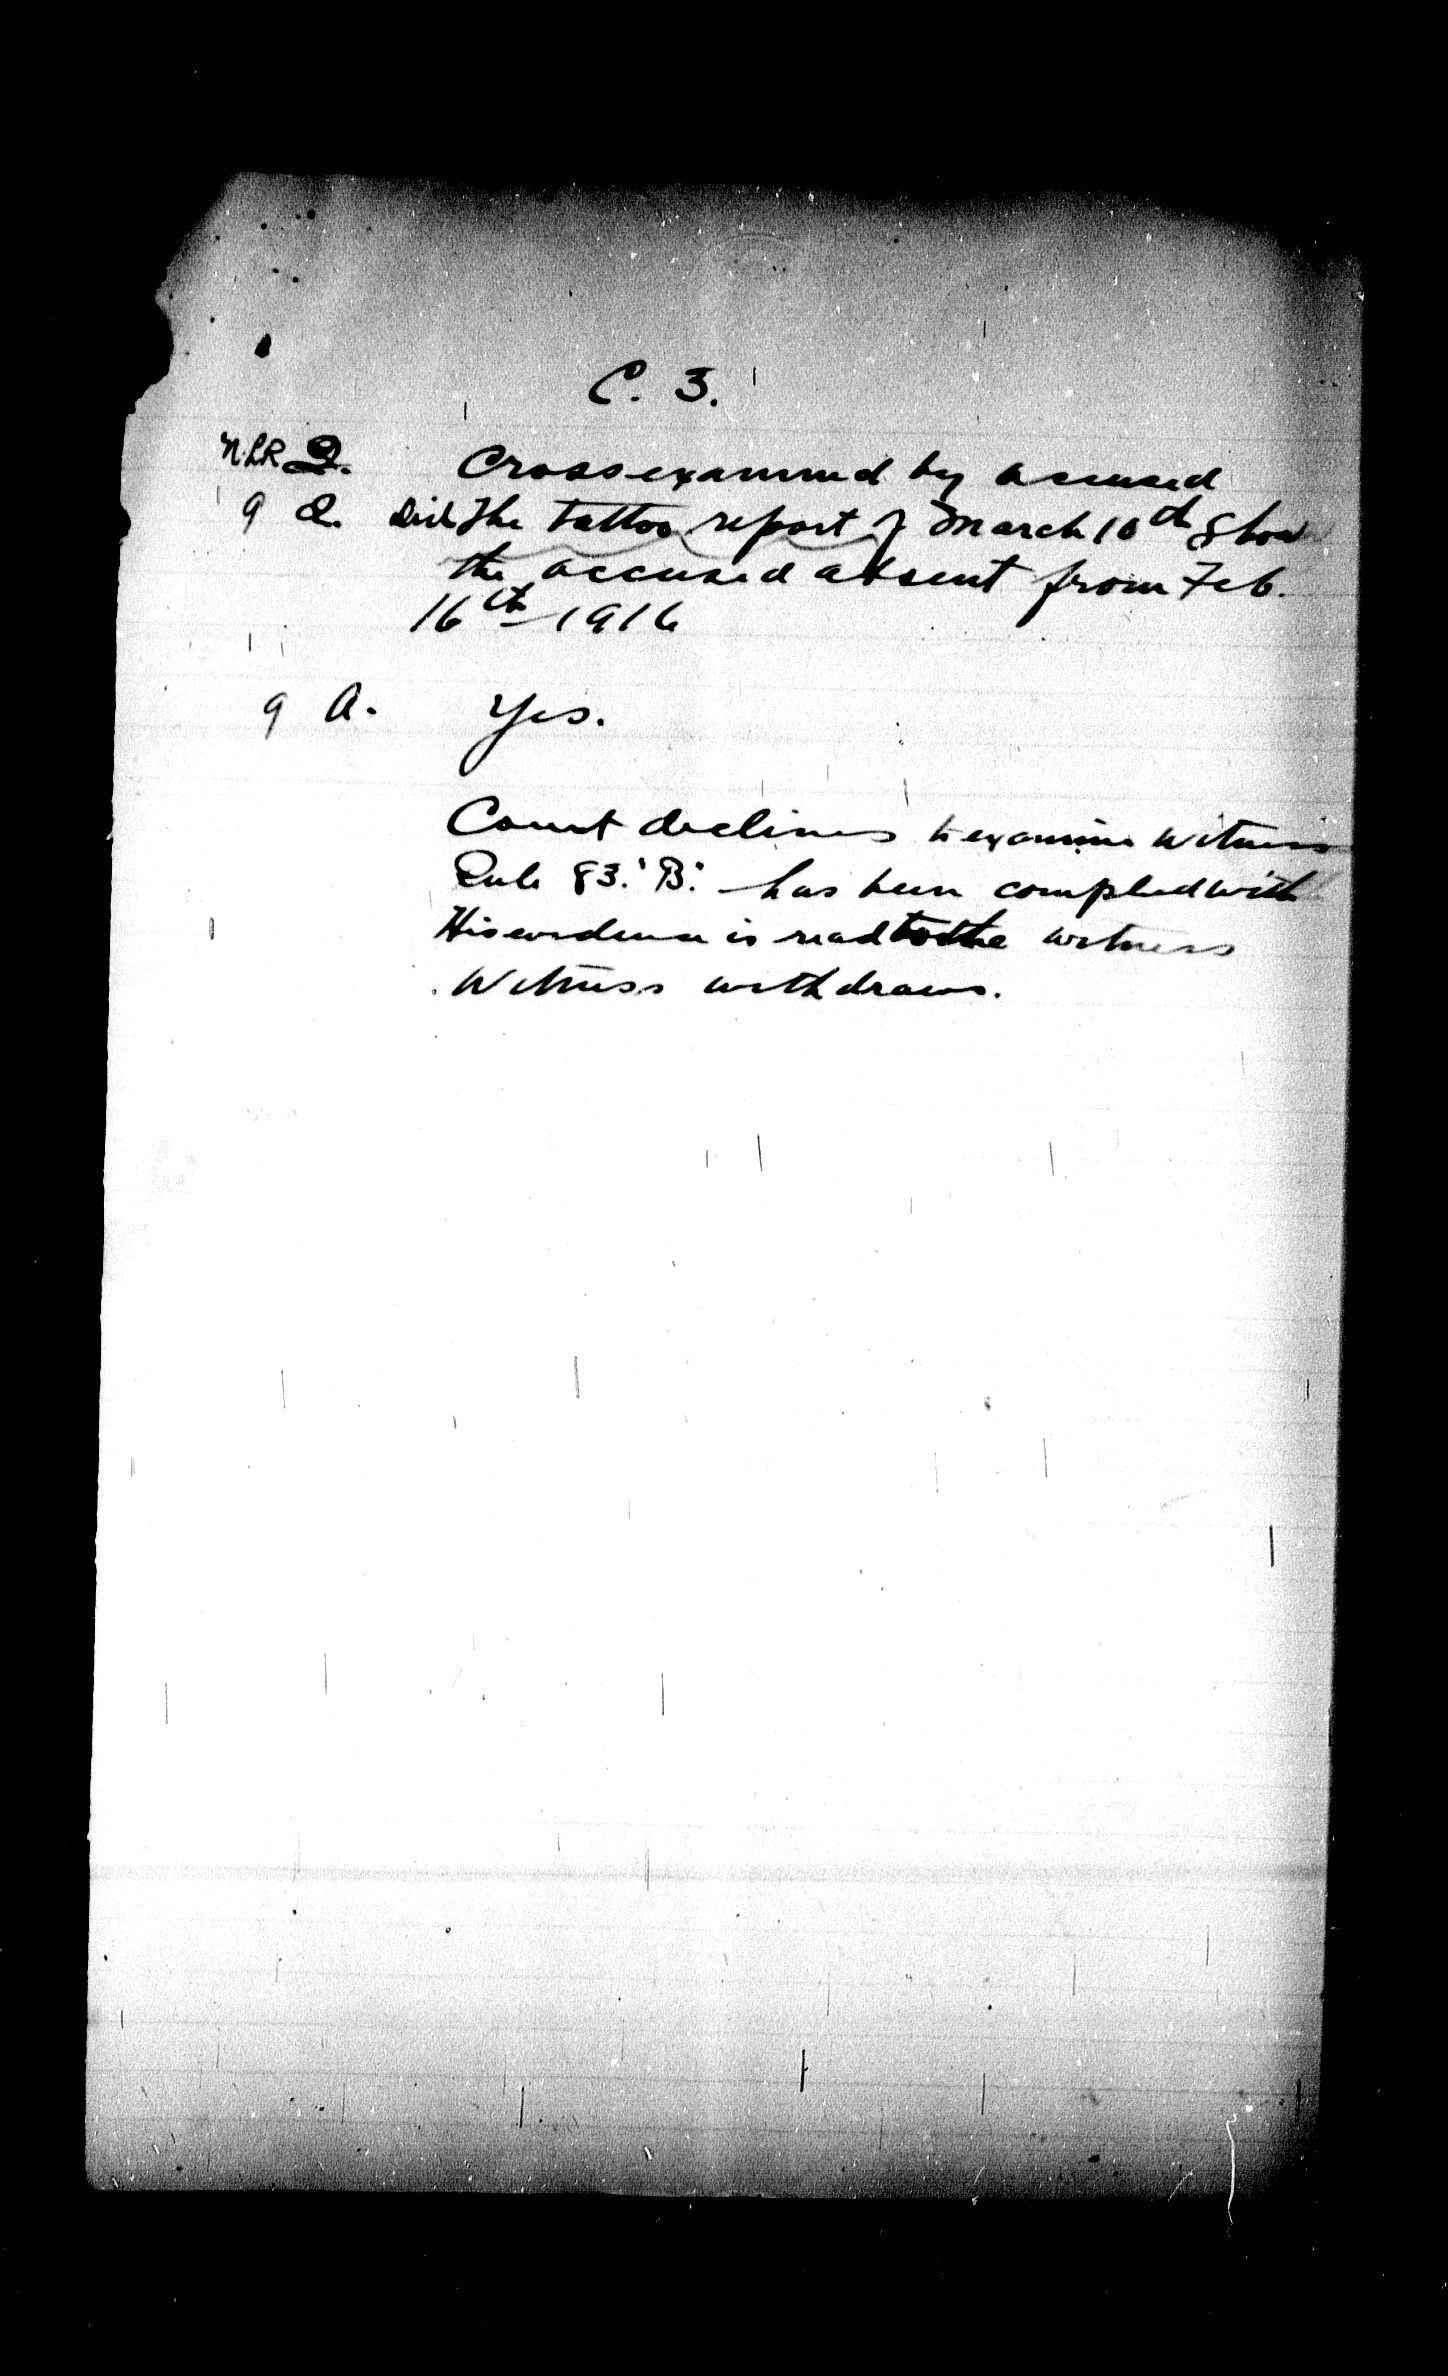 C. 3.
N.L.R. Q. Cross examined by accused
9 Q. Did the tattoo report of March 10th show
the accused absent from Feb.
16th 1916
9 A. Yes.
Court declines to examine witness
Rule 83. "B". has been complied with
His evidence is read to the witness
Witness withdraws.